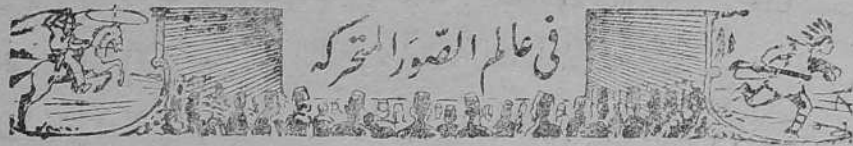 في عالم الصّوَر المتحركه